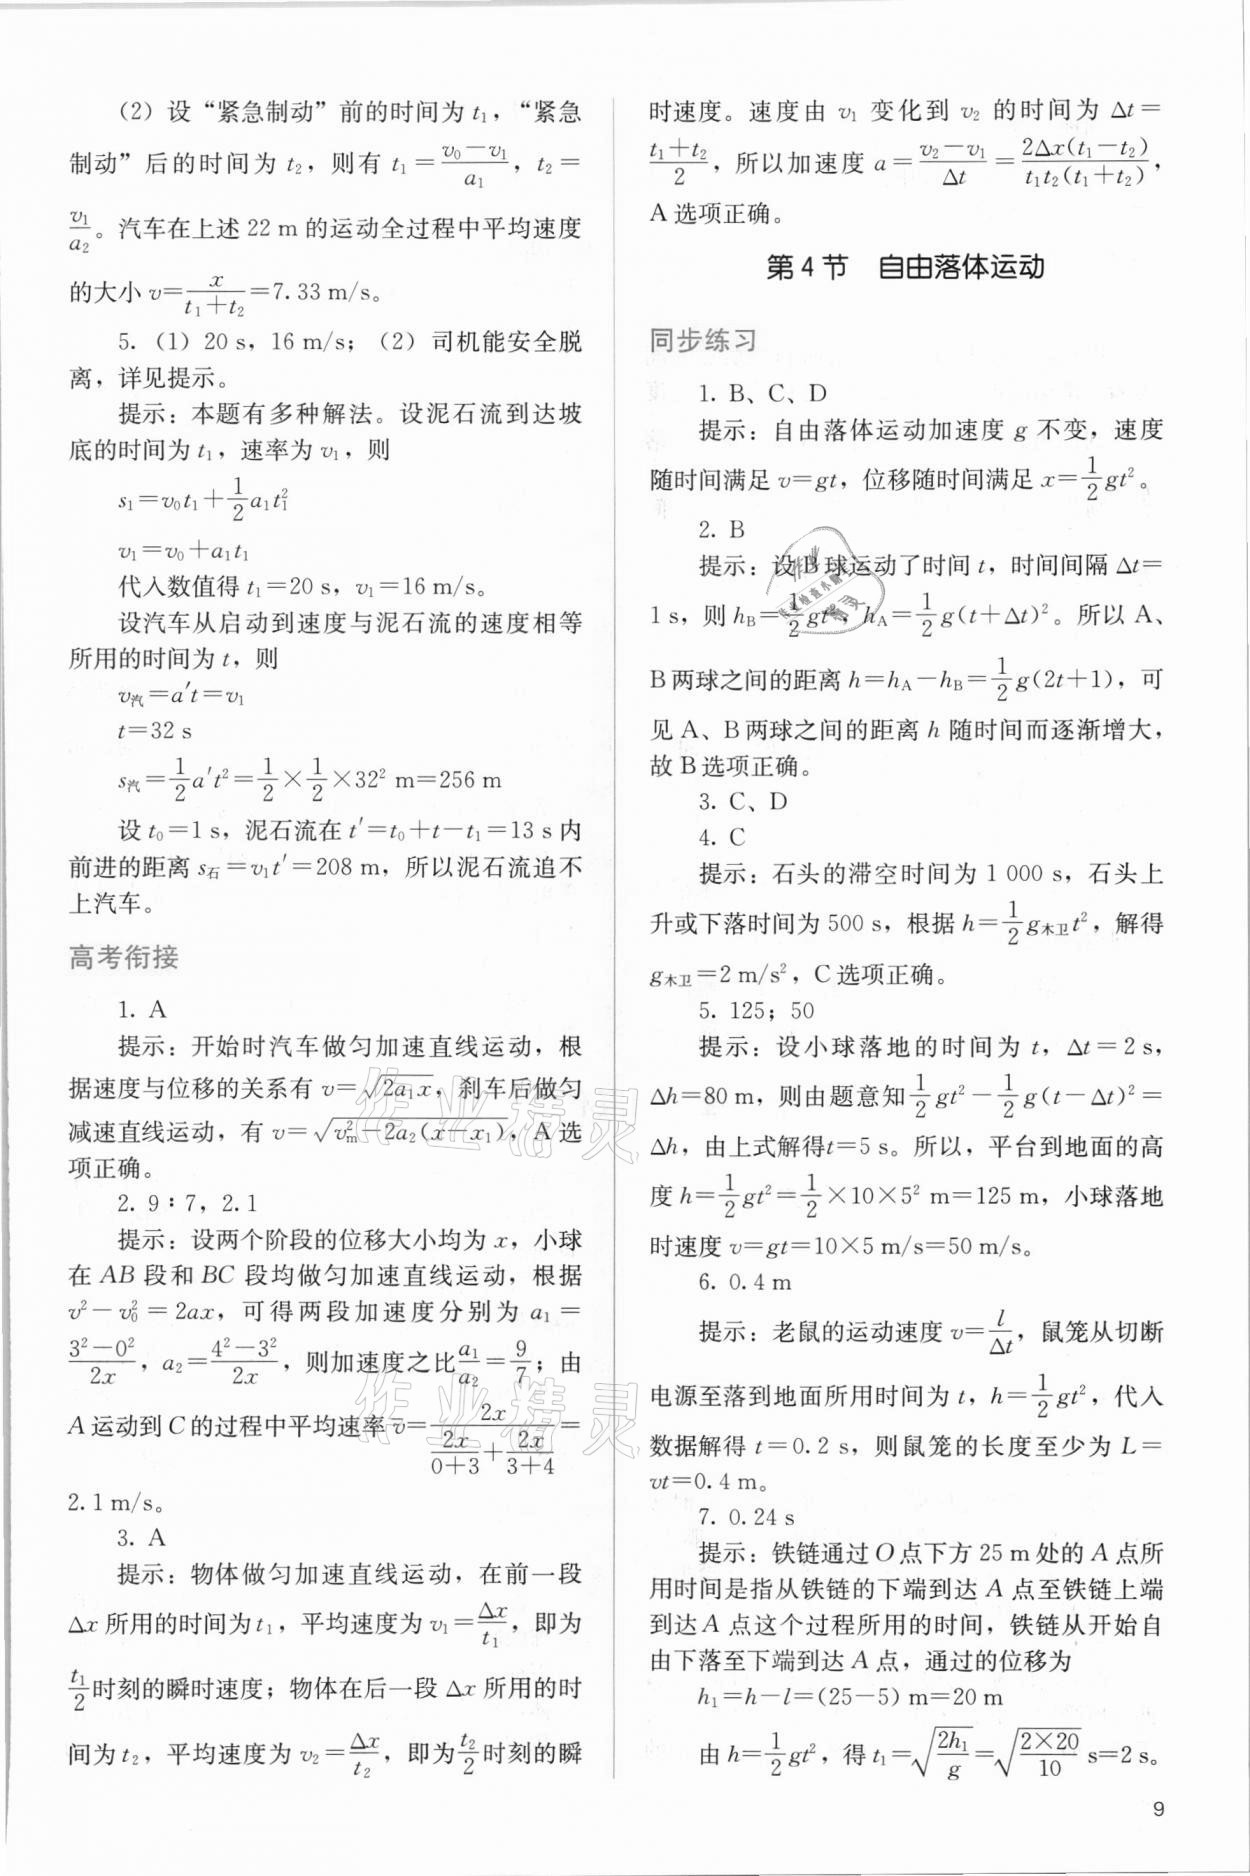 (2) 设“紧急制动”前的时间为 t₁，“紧急
制动”后的时间为 t₂，则有 t₁=(v₀−v₁)/a₁，t₂=
v₁/a₂。汽车在上述 22 m 的运动全过程中平均速度
的大小 v=x/(t₁+t₂)=7.33 m/s。
5. (1) 20 s，16 m/s；(2) 司机能安全脱
离，详见提示。
提示：本题有多种解法。设泥石流到达坡
底的时间为 t₁，速率为 v₁，则
s₁=v₀t₁+½a₁t₁²
v₁=v₀+a₁t₁
代入数值得 t₁=20 s，v₁=16 m/s。
设汽车从启动到速度与泥石流的速度相等
所用的时间为 t，则
v汽=a′t=v₁
t=32 s
s汽=½a′t²=½×½×32² m=256 m
设 t₀=1 s，泥石流在 t′=t₀+t−t₁=13 s 内
前进的距离 s石=v₁t′=208 m，所以泥石流追不
上汽车。
高考衔接
1. A
提示：开始时汽车做匀加速直线运动，根
据速度与位移的关系有 v=√(2a₁x)，刹车后做匀
减速直线运动，有 v=√(vm²−2a₂(x−x₁))，A 选
项正确。
2. 9∶7，2.1
提示：设两个阶段的位移大小均为 x，小球
在 AB 段和 BC 段均做匀加速直线运动，根据
v²−v₀²=2ax，可得两段加速度分别为 a₁=
(3²−0²)/2x，a₂=(4²−3²)/2x，则加速度之比a₁/a₂=9/7；由
A 运动到 C 的过程中平均速率 v̄=2x/(2x/(0+3)+2x/(3+4))=
2.1 m/s。
3. A
提示：物体做匀加速直线运动，在前一段
Δx 所用的时间为 t₁，平均速度为 v₁=Δx/t₁，即为
t₁/2时刻的瞬时速度；物体在后一段 Δx 所用的时
间为 t₂，平均速度为 v₂=Δx/t₂，即为t₂/2时刻的瞬
时速度。速度由 v₁ 变化到 v₂ 的时间为 Δt=
(t₁+t₂)/2，所以加速度 a=(v₂−v₁)/Δt=2Δx(t₁−t₂)/(t₁t₂(t₁+t₂))，
A 选项正确。
第 4 节 自由落体运动
同步练习
1. B、C、D
提示：自由落体运动加速度 g 不变，速度
随时间满足 v=gt，位移随时间满足 x=½gt²。
2. B
提示：设 B 球运动了时间 t，时间间隔 Δt=
1 s，则 hB=½gt²，hA=½g(t+Δt)²。所以 A、
B 两球之间的距离 h=hA−hB=½g(2t+1)，可
见 A、B 两球之间的距离 h 随时间而逐渐增大，
故 B 选项正确。
3. C、D
4. C
提示：石头的滞空时间为 1 000 s，石头上
升或下落时间为 500 s，根据 h=½g木卫t²，解得
g木卫=2 m/s²，C 选项正确。
5. 125；50
提示：设小球落地的时间为 t，Δt=2 s，
Δh=80 m，则由题意知½gt²−½g(t−Δt)²=
Δh，由上式解得t=5 s。所以，平台到地面的高
度 h=½gt²=½×10×5² m=125 m，小球落地
时速度 v=gt=10×5 m/s=50 m/s。
6. 0.4 m
提示：老鼠的运动速度 v=l/Δt，鼠笼从切断
电源至落到地面所用时间为 t，h=½gt²，代入
数据解得 t=0.2 s，则鼠笼的长度至少为 L=
vt=0.4 m。
7. 0.24 s
提示：铁链通过 O 点下方 25 m 处的 A 点所
用时间是指从铁链的下端到达 A 点至铁链上端
到达 A 点这个过程所用的时间，铁链从开始自
由下落至下端到达 A 点，通过的位移为
h₁=h−l=(25−5) m=20 m
由 h=½gt²，得 t₁=√(2h₁/g)=√(2×20/10) s=2 s。
9
作业精灵
作业精灵